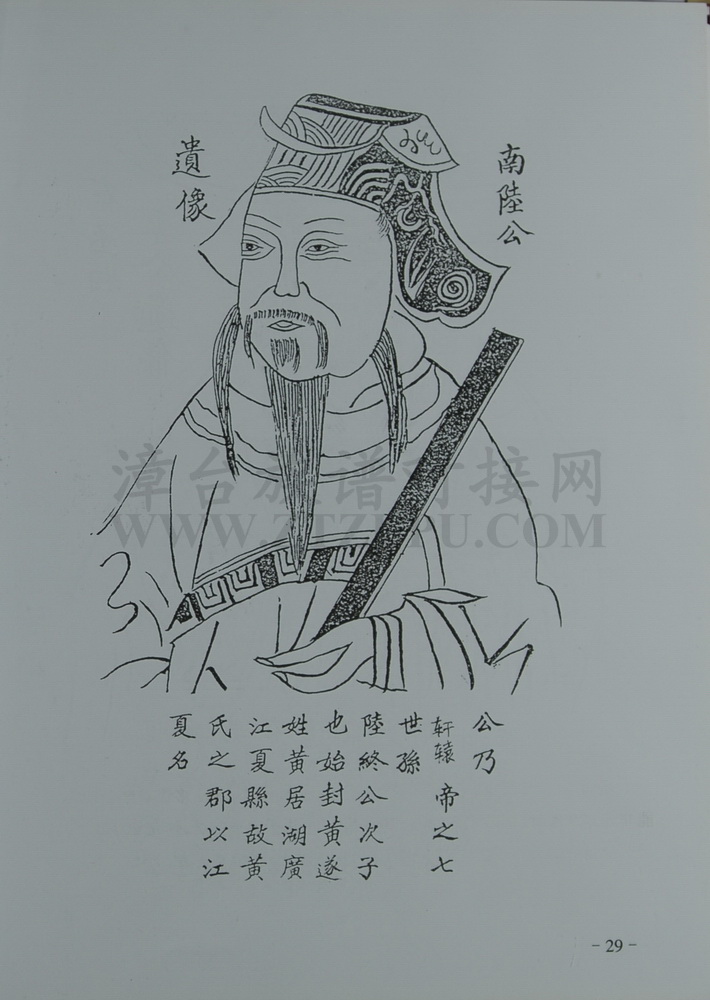 南陸公
遺像
公乃
軒轅帝之七
世孫
陸終公次子
也始封黃遂
姓黃居湖廣
江夏縣故黃
氏之郡以江
夏名
漳台族谱对接网
WWW.ZTZUPU.COM
- 29 -